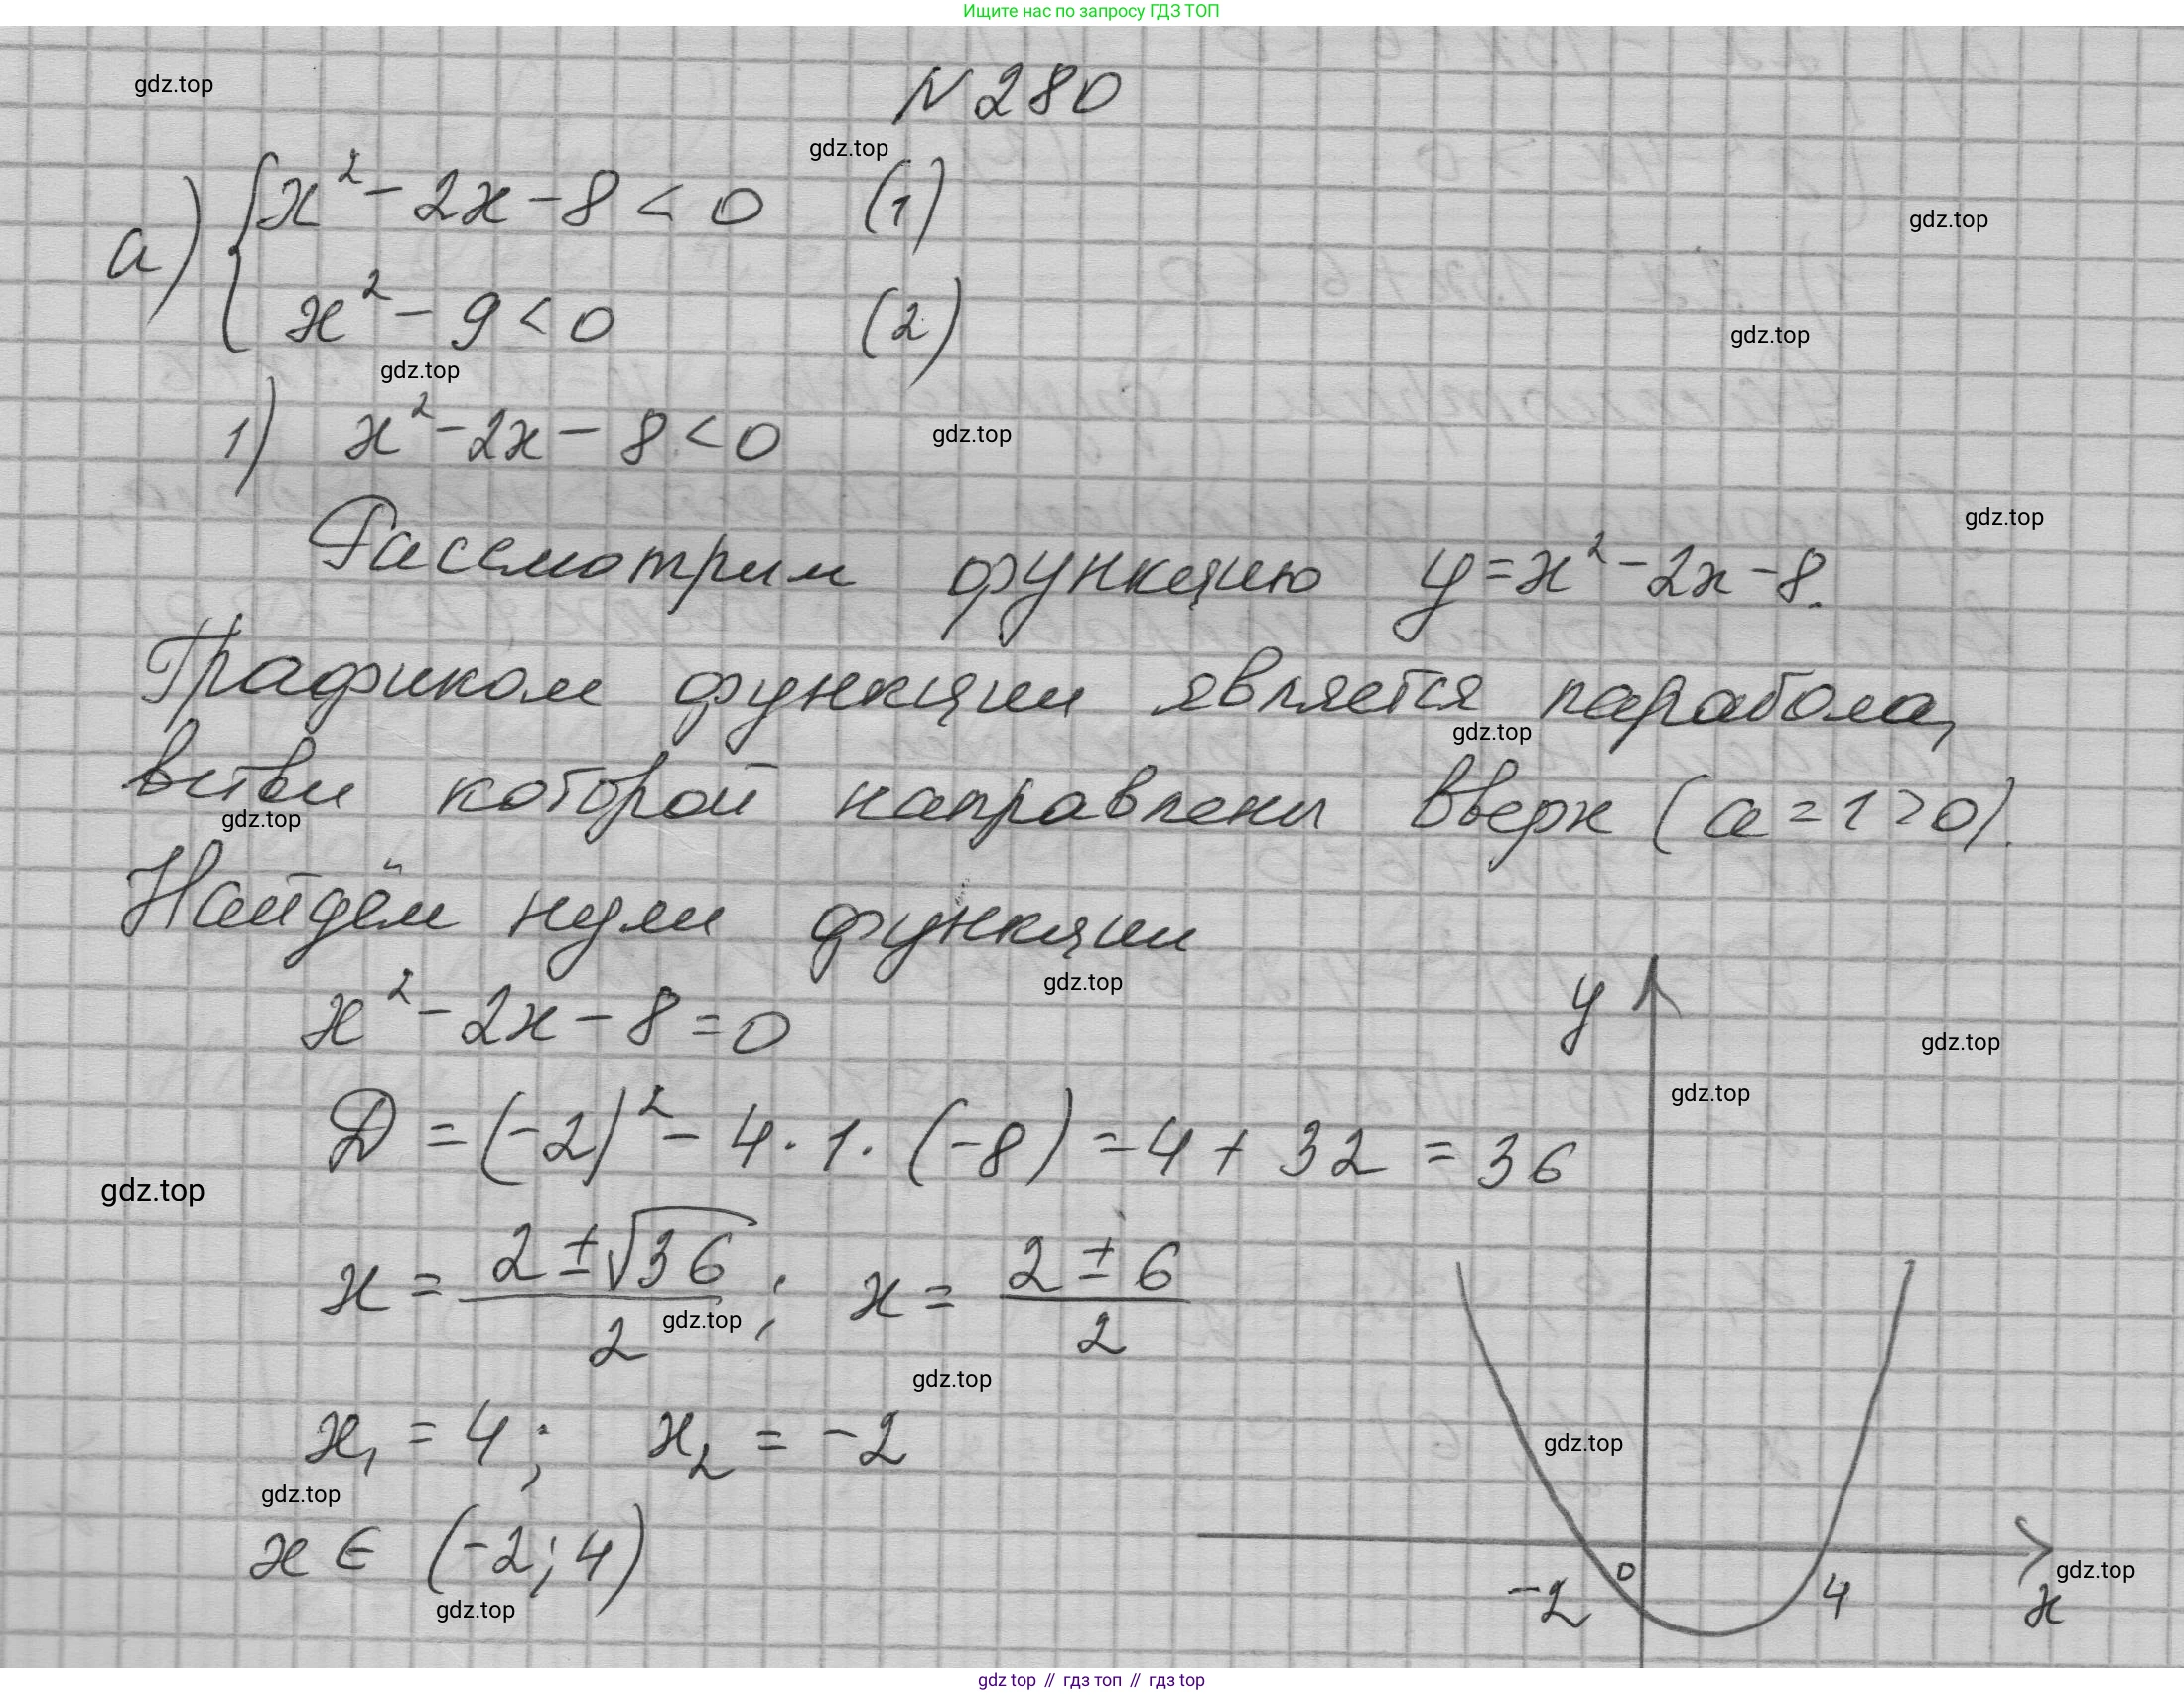 Ищите нас по запросу ГДЗ ТОП
N 280
gdz.top
gdz.top
а) { x² - 2x - 8 < 0 (1)
gdz.top
x² - 9 < 0 (2)
gdz.top
gdz.top
1) x² - 2x - 8 < 0
gdz.top
gdz.top
Рассмотрим функцию y = x² - 2x - 8.
Графиком функции является парабола,
gdz.top
ветви которой направлены вверх (a = 1 > 0).
gdz.top
Найдём нули функции
gdz.top
x² - 2x - 8 = 0
y
gdz.top
gdz.top
D = (-2)² - 4 · 1 · (-8) = 4 + 32 = 36
gdz.top
x = (2 ± √36)/2 ; x = (2 ± 6)/2
gdz.top
gdz.top
x₁ = 4 ; x₂ = -2
gdz.top
gdz.top
x ∈ (-2; 4)
gdz.top
-2 0 4 x
gdz.top
gdz top // гдз топ // gdz top